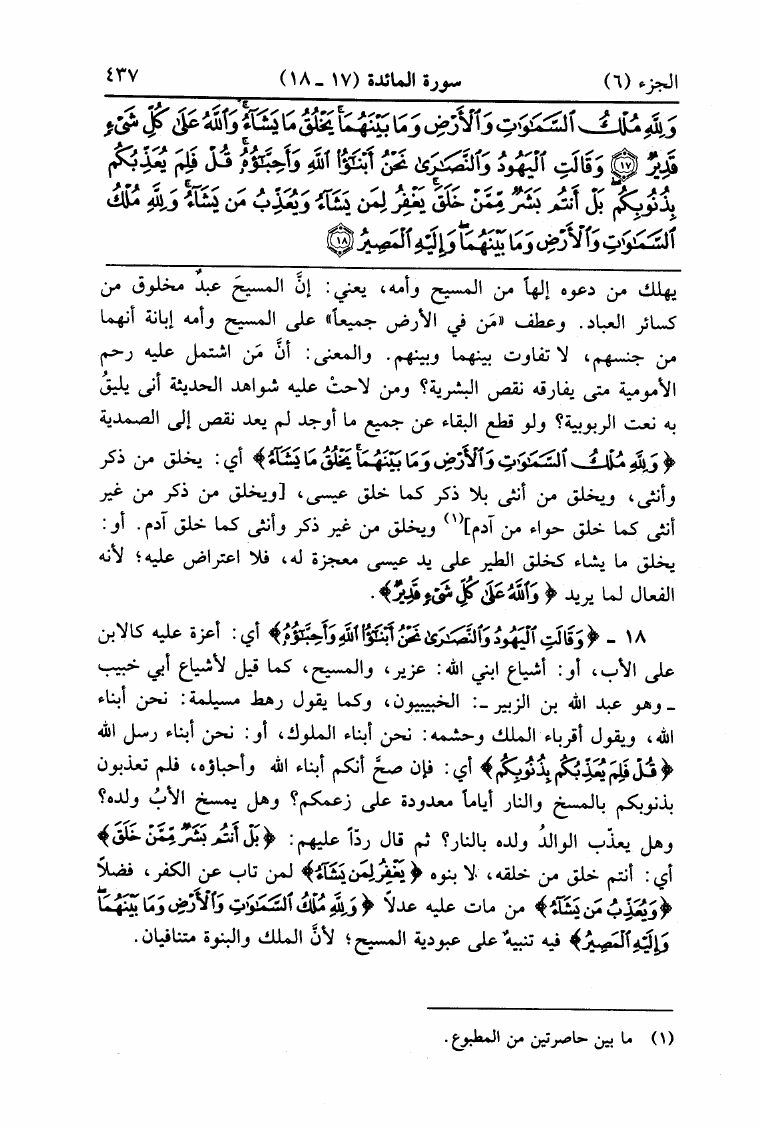 الجزء (٦)
سورة المائدة (١٧ ـ ١٨)
٤٣٧
وَلِلَّهِ مُلْكُ السَّمَٰوَٰتِ وَالْأَرْضِ وَمَا بَيْنَهُمَا ۚ يَخْلُقُ مَا يَشَاءُ ۚ وَاللَّهُ عَلَىٰ كُلِّ شَيْءٍ
قَدِيرٌ ﴿١٧﴾ وَقَالَتِ الْيَهُودُ وَالنَّصَٰرَىٰ نَحْنُ أَبْنَٰٓؤُا اللَّهِ وَأَحِبَّٰٓؤُهُۥ ۚ قُلْ فَلِمَ يُعَذِّبُكُم
بِذُنُوبِكُم ۖ بَلْ أَنتُم بَشَرٌ مِّمَّنْ خَلَقَ ۚ يَغْفِرُ لِمَن يَشَاءُ وَيُعَذِّبُ مَن يَشَاءُ ۚ وَلِلَّهِ مُلْكُ
السَّمَٰوَٰتِ وَالْأَرْضِ وَمَا بَيْنَهُمَا ۖ وَإِلَيْهِ الْمَصِيرُ ﴿١٨﴾
يهلك من دعوه إلهاً من المسيح وأمه، يعني: إنَّ المسيحَ عبدٌ مخلوق من
كسائر العباد. وعطف «مَن في الأرض جميعاً» على المسيح وأمه إبانة أنهما
من جنسهم، لا تفاوت بينهما وبينهم. والمعنى: أنَّ مَن اشتمل عليه رحم
الأمومية متى يفارقه نقص البشرية؟ ومن لاحتْ عليه شواهد الحديثة أنى يليقُ
به نعت الربوبية؟ ولو قطع البقاء عن جميع ما أوجد لم يعد نقص إلى الصمدية
﴿وَلِلَّهِ مُلْكُ السَّمَٰوَٰتِ وَالْأَرْضِ وَمَا بَيْنَهُمَا ۚ يَخْلُقُ مَا يَشَاءُ﴾ أي: يخلق من ذكر
وأنثى، ويخلق من أنثى بلا ذكر كما خلق عيسى، [ويخلق من ذكر من غير
أنثى كما خلق حواء من آدم](١) ويخلق من غير ذكر وأنثى كما خلق آدم. أو:
يخلق ما يشاء كخلق الطير على يد عيسى معجزة له، فلا اعتراض عليه؛ لأنه
الفعال لما يريد ﴿وَاللَّهُ عَلَىٰ كُلِّ شَيْءٍ قَدِيرٌ﴾.
١٨ ـ ﴿وَقَالَتِ الْيَهُودُ وَالنَّصَٰرَىٰ نَحْنُ أَبْنَٰٓؤُا اللَّهِ وَأَحِبَّٰٓؤُهُۥ﴾ أي: أعزة عليه كالابن
على الأب، أو: أشياع ابني الله: عزير، والمسيح، كما قيل لأشياع أبي خبيب
ـ وهو عبد الله بن الزبير ـ: الخبيبيون، وكما يقول رهط مسيلمة: نحن أبناء
الله، ويقول أقرباء الملك وحشمه: نحن أبناء الملوك، أو: نحن أبناء رسل الله
﴿قُلْ فَلِمَ يُعَذِّبُكُم بِذُنُوبِكُم﴾ أي: فإن صحَّ أنكم أبناء الله وأحباؤه، فلم تعذبون
بذنوبكم بالمسخ والنار أياماً معدودة على زعمكم؟ وهل يمسخ الأبُ ولده؟
وهل يعذّب الوالدُ ولده بالنار؟ ثم قال ردّاً عليهم: ﴿بَلْ أَنتُم بَشَرٌ مِّمَّنْ خَلَقَ﴾
أي: أنتم خلق من خلقه، لا بنوه ﴿يَغْفِرُ لِمَن يَشَاءُ﴾ لمن تاب عن الكفر، فضلاً
﴿وَيُعَذِّبُ مَن يَشَاءُ﴾ من مات عليه عدلاً ﴿وَلِلَّهِ مُلْكُ السَّمَٰوَٰتِ وَالْأَرْضِ وَمَا بَيْنَهُمَا ۖ
وَإِلَيْهِ الْمَصِيرُ﴾ فيه تنبيهٌ على عبودية المسيح؛ لأنَّ الملك والبنوة متنافيان.
(١) ما بين حاصرتين من المطبوع.